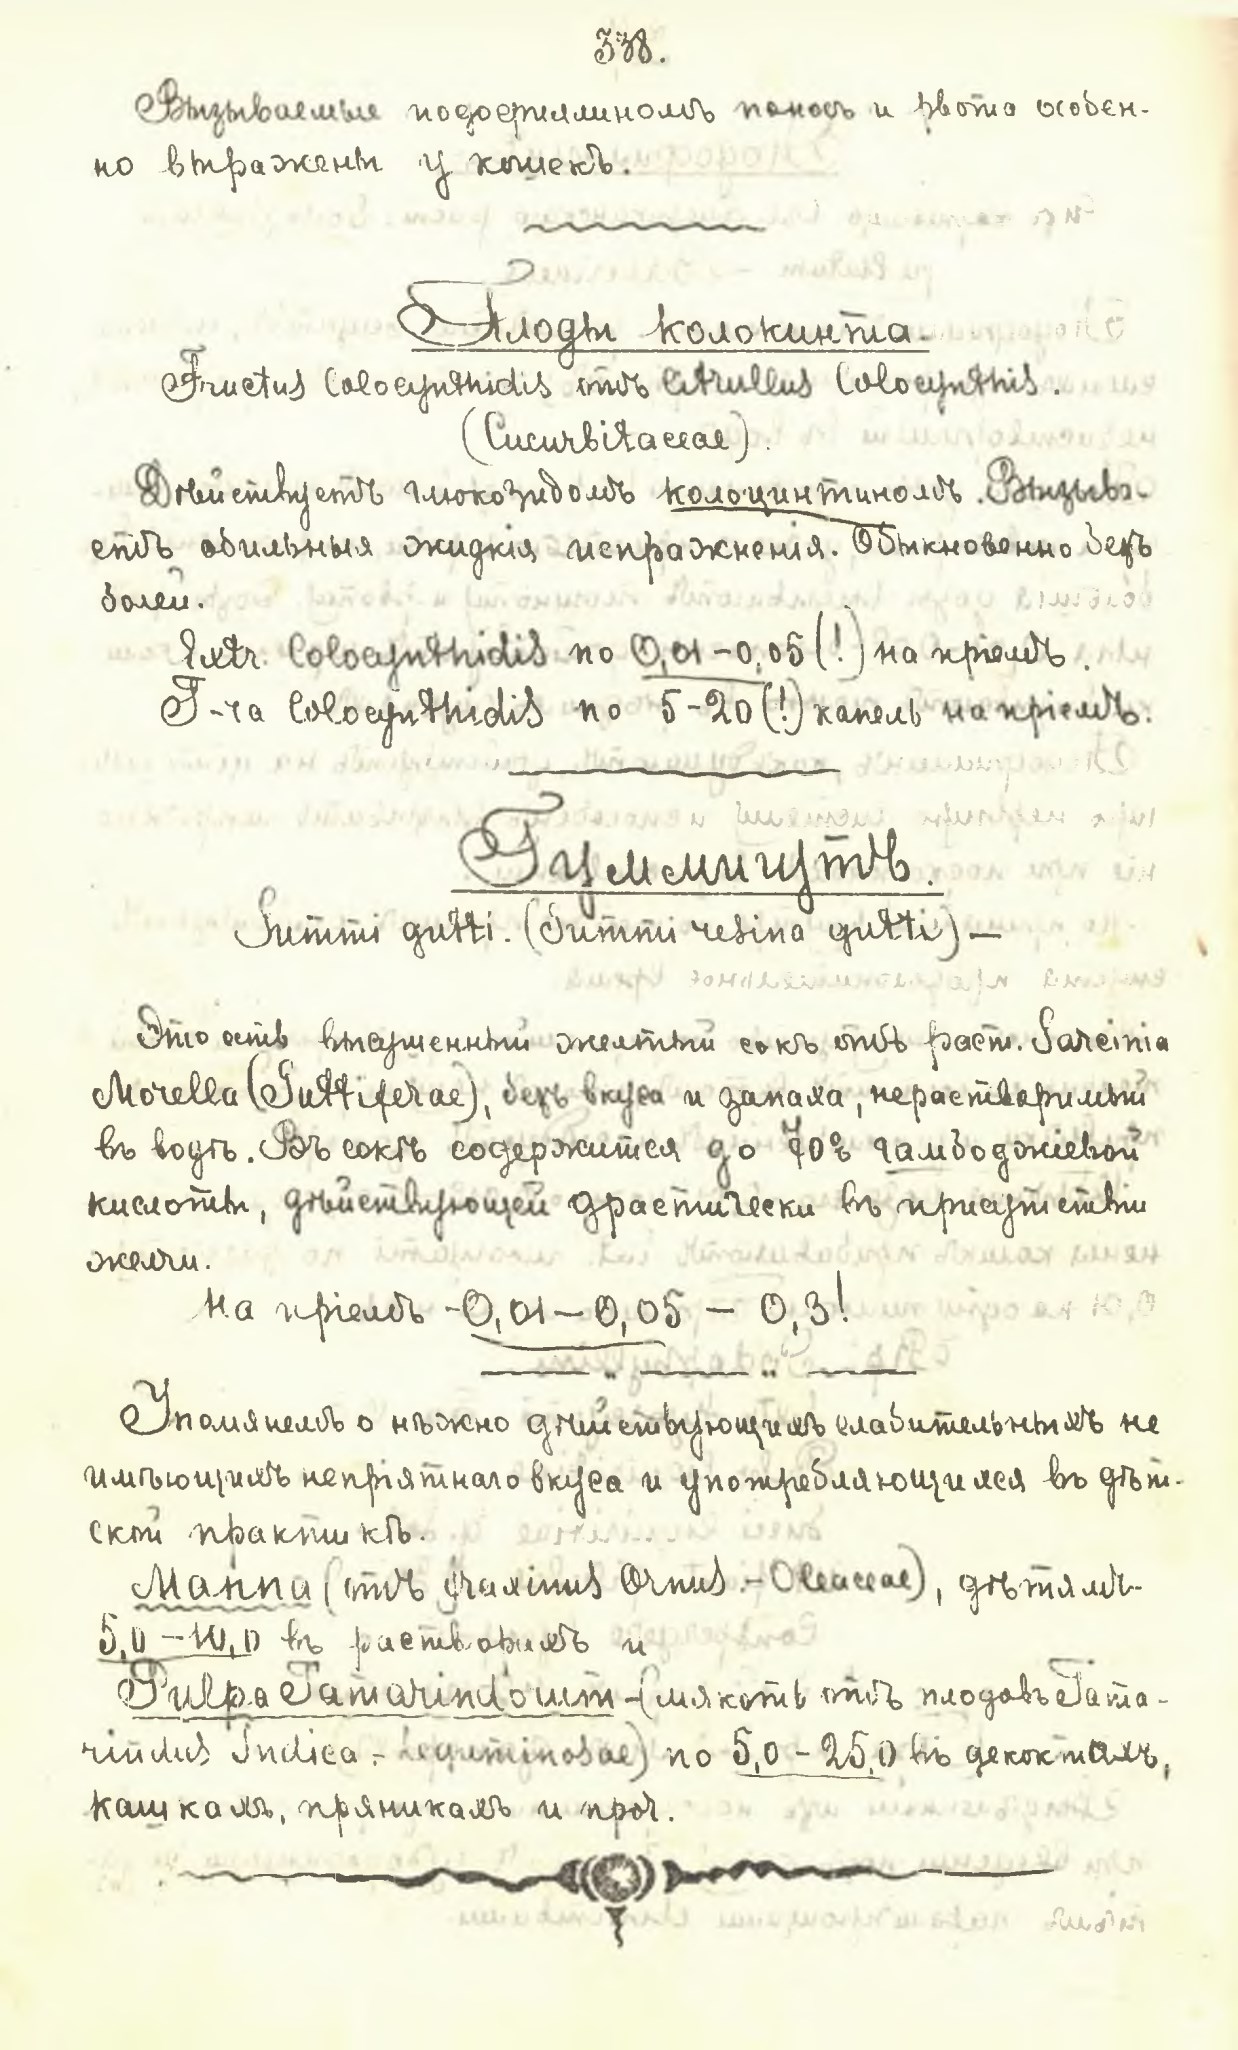 338.
Вызываемые подофиллиномъ поносъ и рвота особен-
но выражены у кошекъ.
Плоды колокинта.
Fructus Colocynthidis отъ Citrullus Colocynthis.
(Cucurbitaceae).
Дѣйствуетъ глюкозидомъ колоцинтиномъ. Вызыва-
етъ обильныя жидкія испражненія. Обыкновенно безъ
болей.
Extr. Colocynthidis по 0,01-0,05(!) на пріемъ.
T-ra Colocynthidis по 5-20(!) капель на пріемъ.
Гуммигутъ.
Gummi gutti. (Gummi resina gutti) —
Это есть высушенный желтый сокъ отъ раст. Garcinia
Morella (Guttiferae), безъ вкуса и запаха, нерастворимый
въ водѣ. Въ сокѣ содержится до 70% гамбоджіевой
кислоты, дѣйствующей драстически въ присутствіи
желчи.
На пріемъ - 0,01 — 0,05 — 0,3!
Упомянемъ о нѣжно дѣйствующихъ слабительныхъ не
имѣющихъ непріятнаго вкуса и употребляющихся въ дѣт-
ской практикѣ.
Манна (отъ Fraxinus Ornus - Oleaceae), дѣтямъ-
5,0 - 10,0 въ растворахъ и
Pulpa Tamarindorum - (мякоть отъ плодовъ Tama-
rindus Indica - Leguminosae) по 5,0 - 25,0 въ декоктахъ,
кашкахъ, пряникахъ и проч.